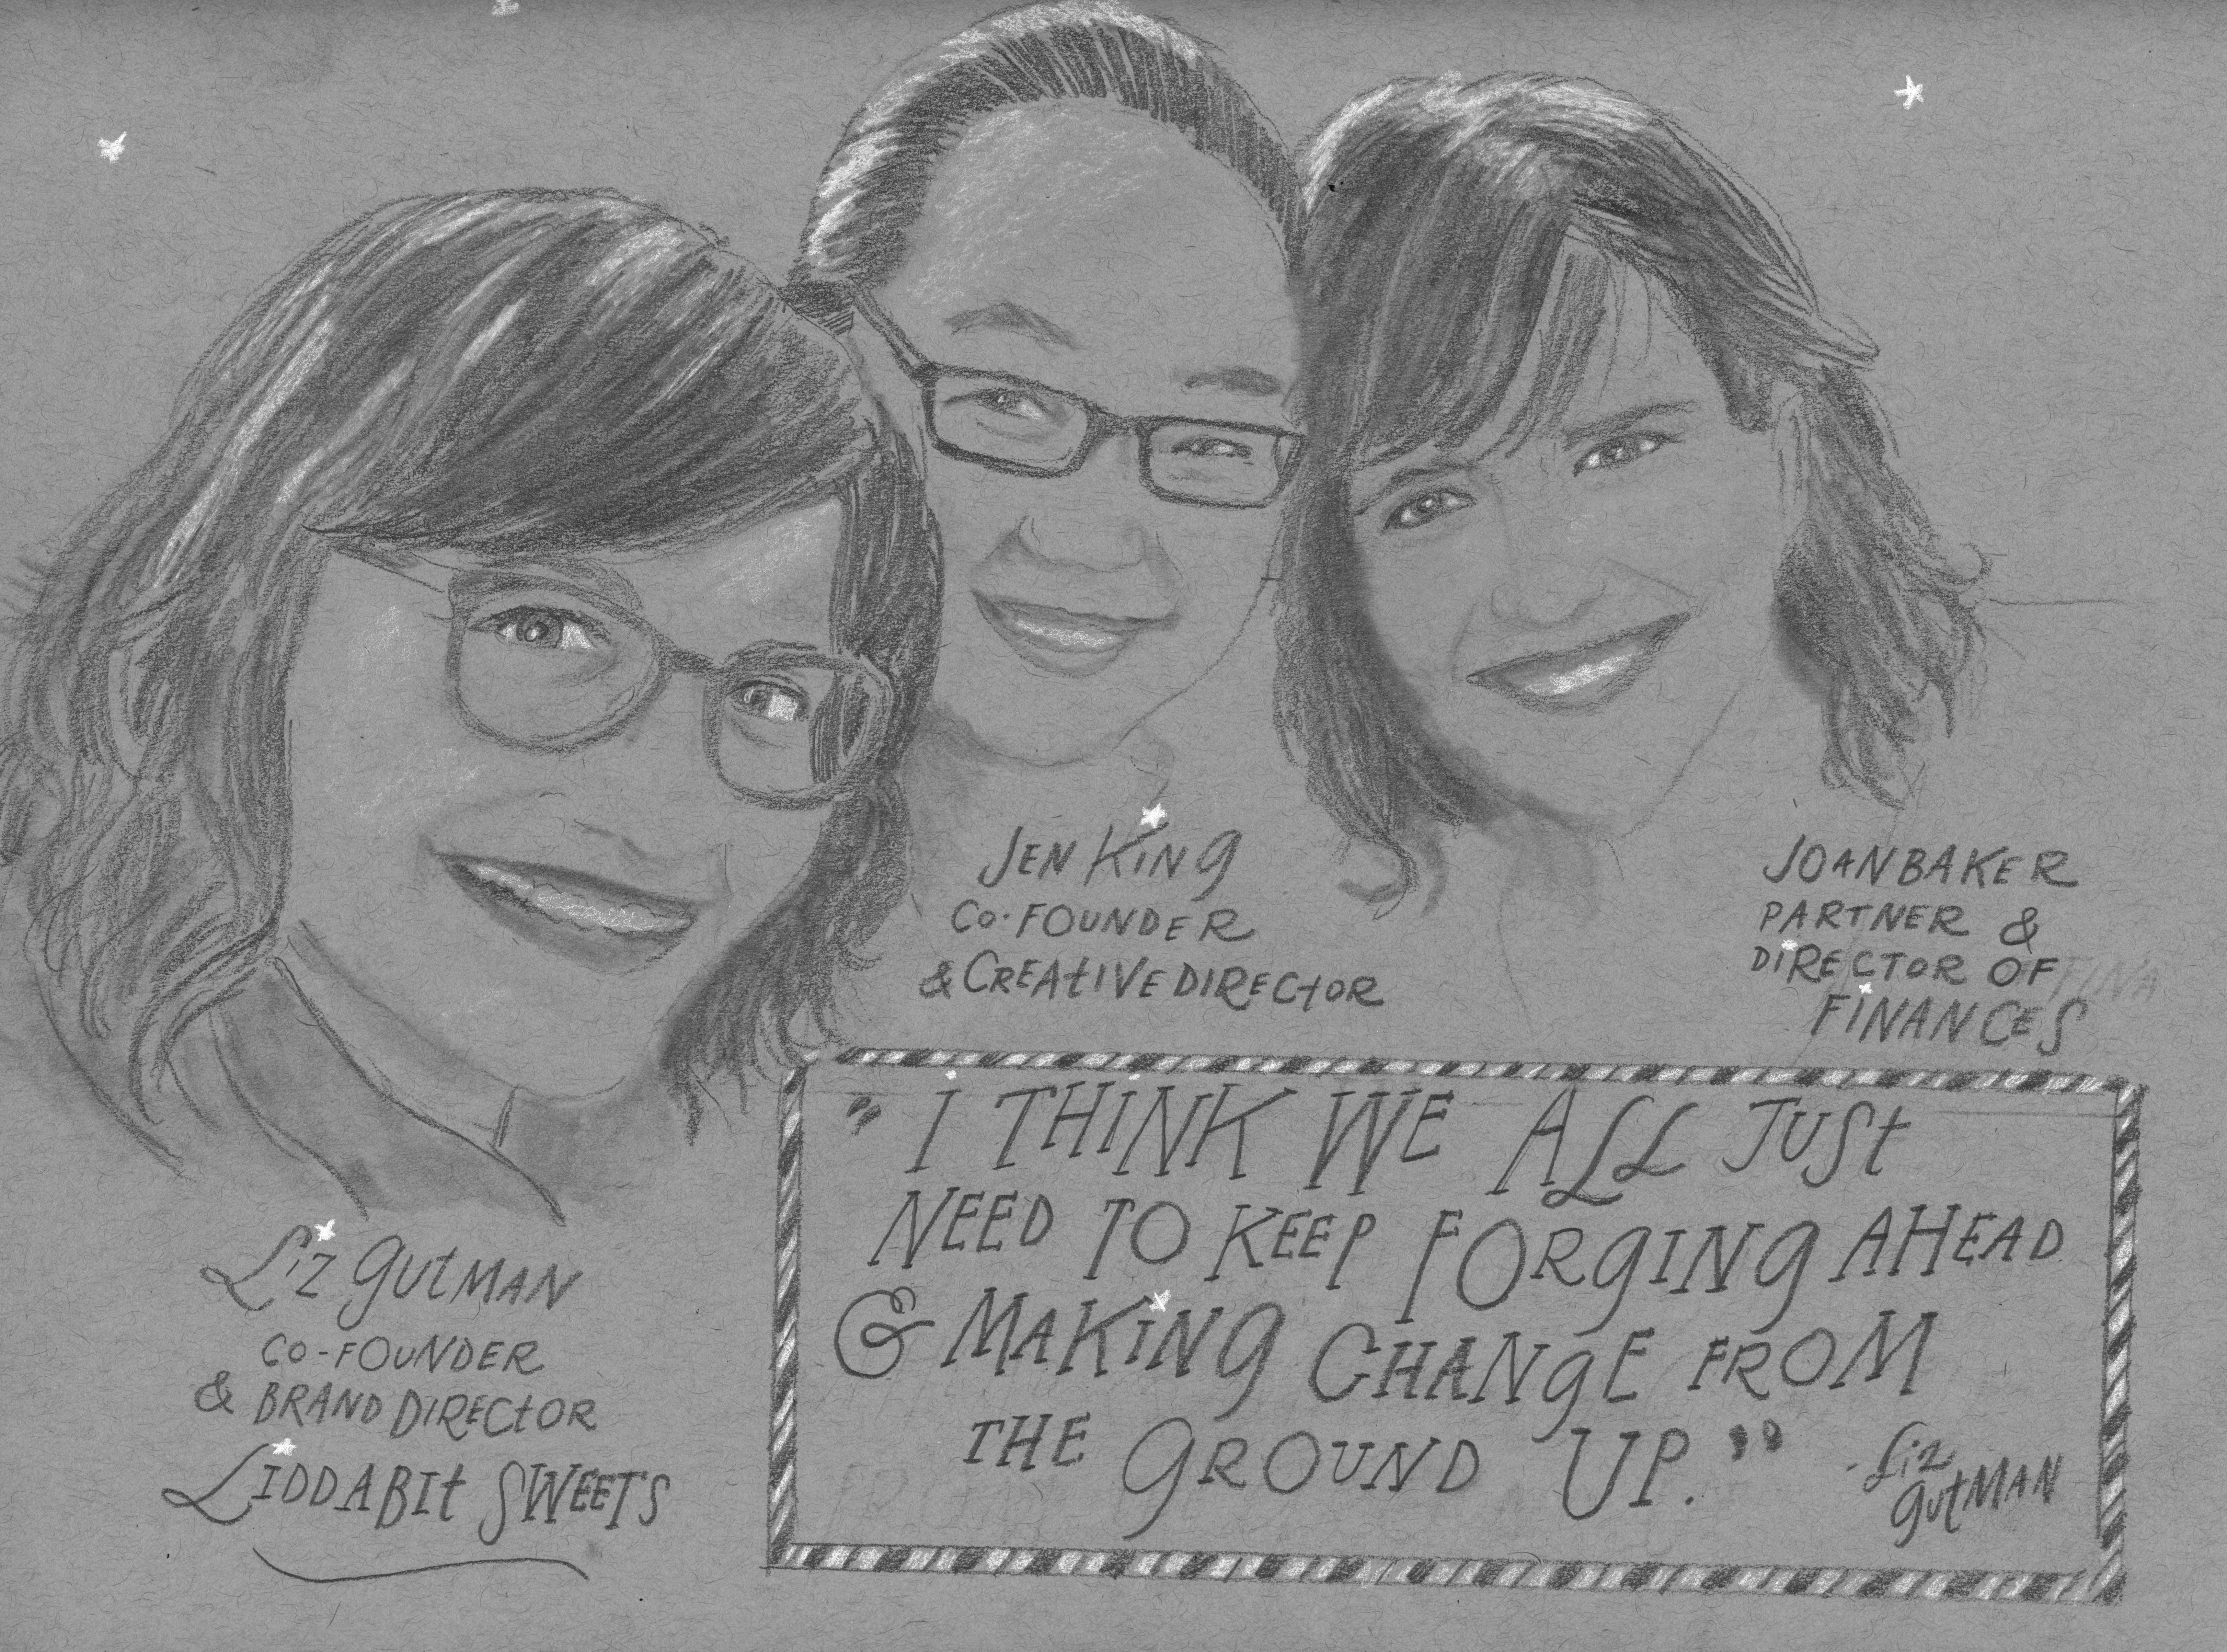 JEN KiNg
CO-FOUNDER
& CREAtIVE DIRECtOR
JOAN BAKER
PARTNER &
DiRECTOR OF
FiNANCES
Liz gUtMAN
CO-FOUNDER
& BRAND DiRECtOR
LIDDABIt SWEETS
"I THiNK WE ALL JUSt
NEED TO KEEP FORgINg AHEAD
& MAKiNg CHANgE FROM
THE gROUND UP."
- Liz
gUtMAN